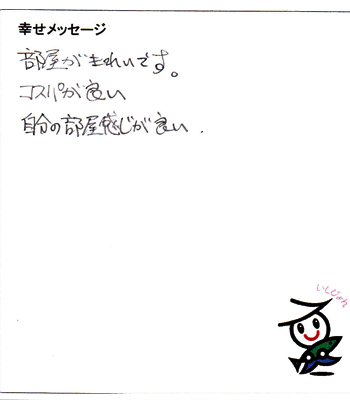 幸せメッセージ
部屋がきれいです。
コスパが良い
自分の部屋感じが良い.
いしじゃん